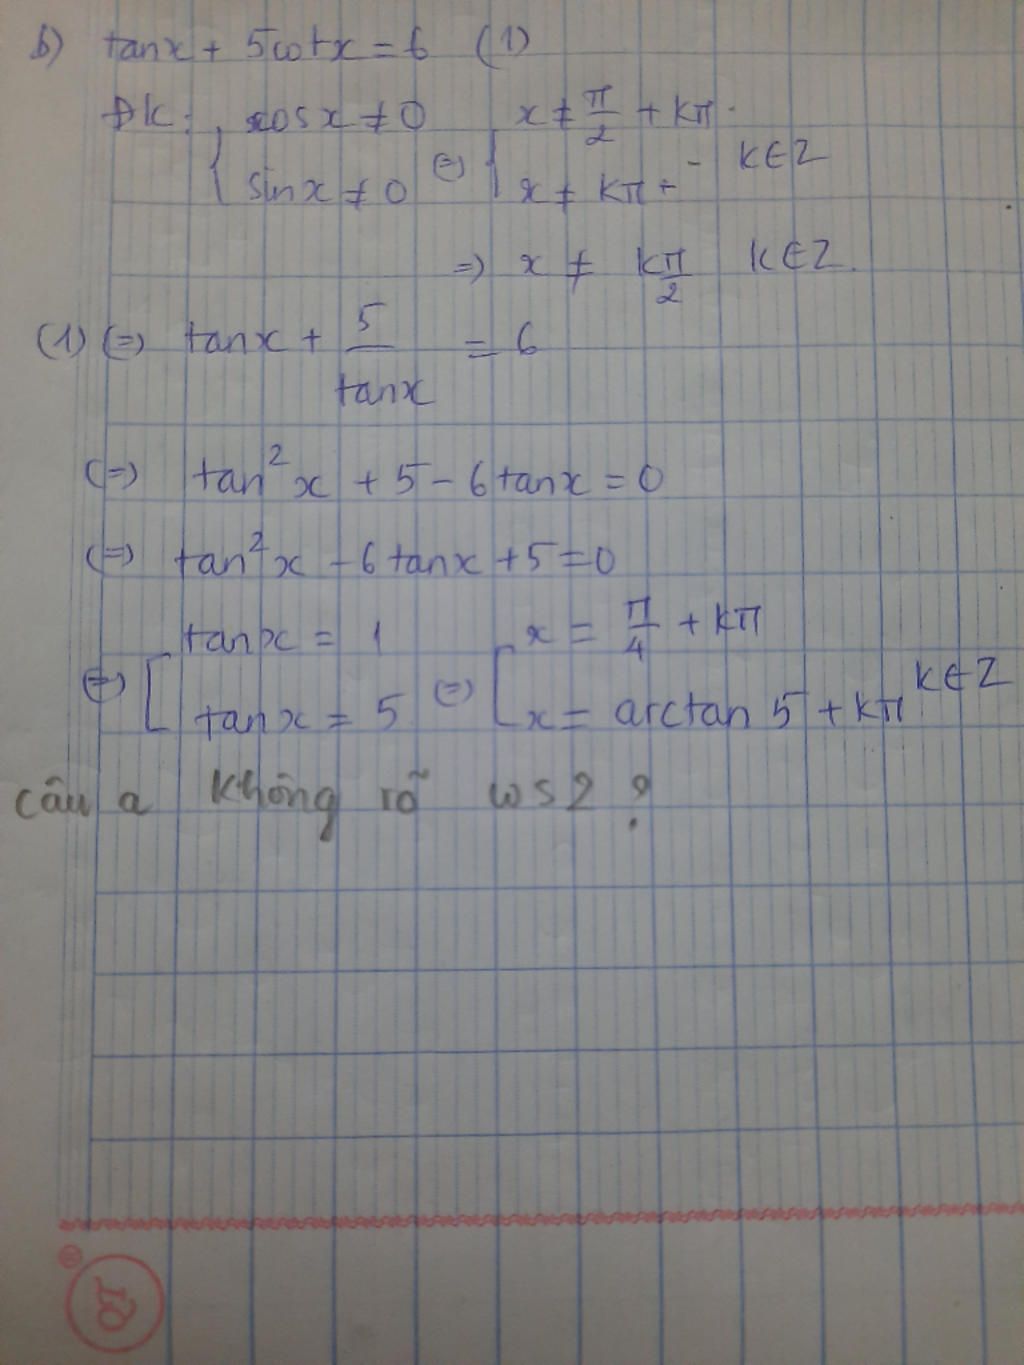 b) tanx + 5cotx = 6 (1)
ĐK: { cosx ≠ 0 (=) { x ≠ π/2 + kπ
sinx ≠ 0 x ≠ kπ k∈Z
=) x ≠ kπ/2 k∈Z.
(1) (=) tanx + 5/tanx = 6
(=) tan²x + 5 - 6tanx = 0
(=) tan²x - 6tanx + 5 = 0
(=) [ tanx = 1 (=) [ x = π/4 + kπ
tanx = 5 x = arctan 5 + kπ k∈Z
câu a không rõ cos2 ?